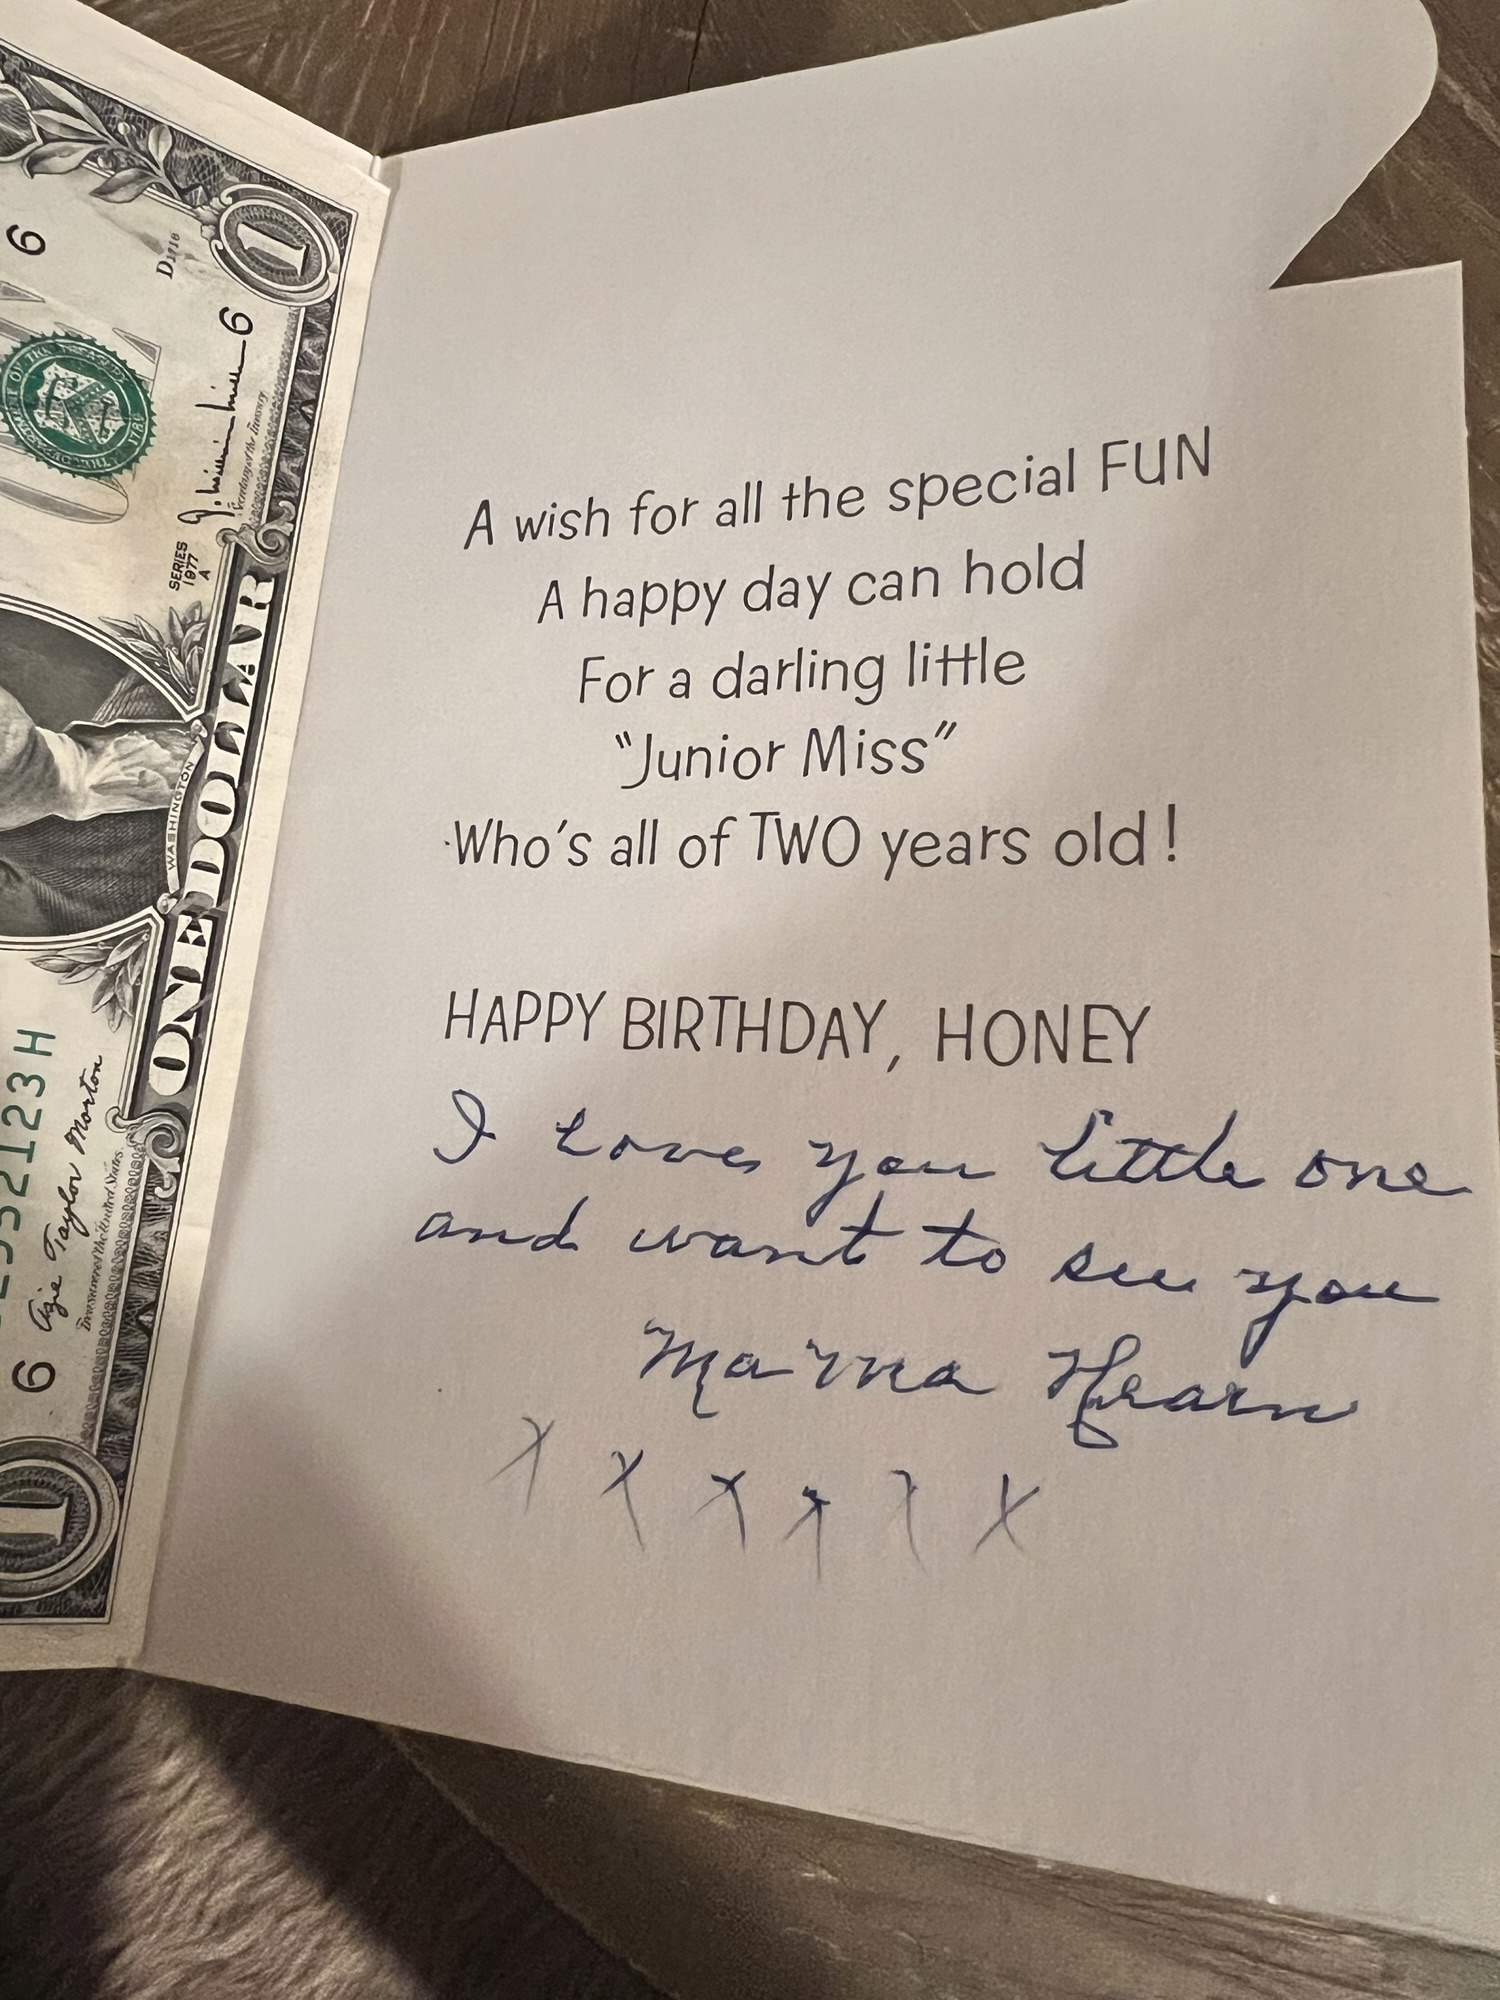 6
D1716
1
6
Secretary of the Treasury.
SERIES
1977
A
WASHINGTON
ONE DOLLAR
2123H
Azie Taylor Morton
Treasurer of the United States.
6
1
A wish for all the special FUN
A happy day can hold
For a darling little
"Junior Miss"
Who's all of TWO years old!
HAPPY BIRTHDAY, HONEY
I love you little one
and want to see you
Mama Hearn
X X X X X X